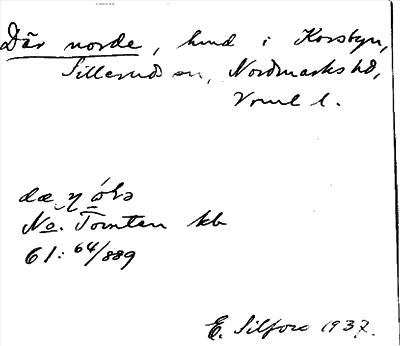 Där norde, hmd i Korsbyn,
Sillerud sn, Nordmarks hd,
Vrml l.
No. Tomten kb
61: 64/889
E. Silfors 1937.